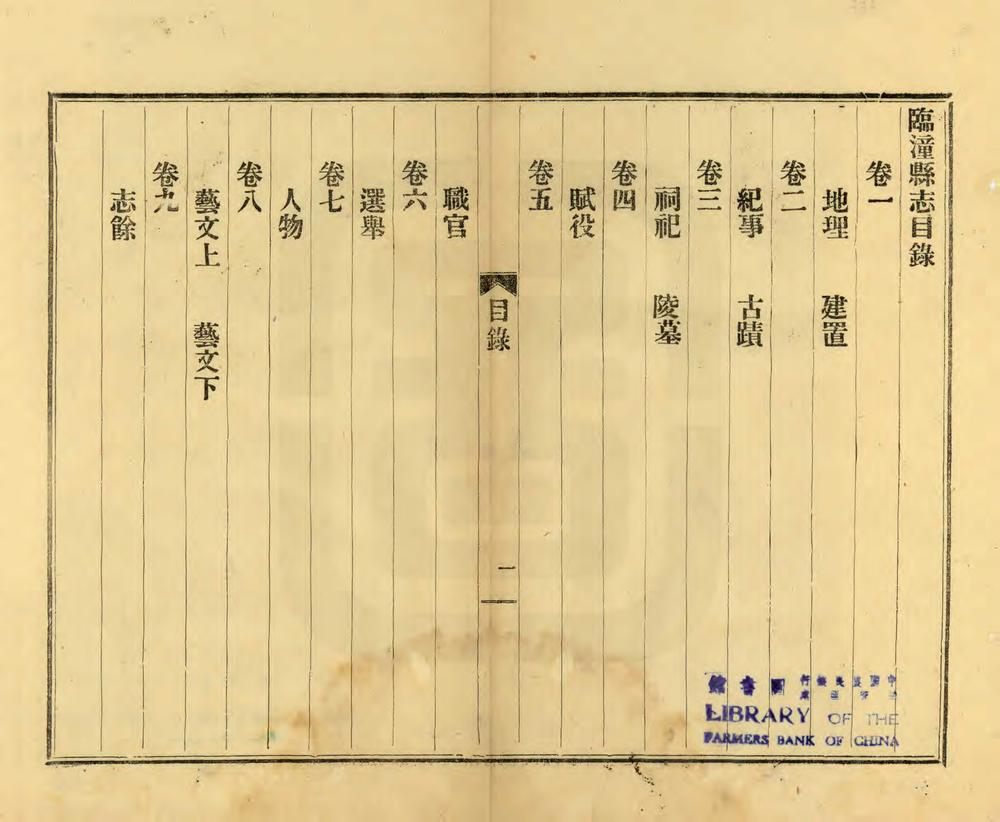 臨潼縣志目錄
卷一
地理　建置
卷二
紀事　古蹟
卷三
祠祀　陵墓
卷四
賦役
卷五
目錄
一
職官
卷六
選舉
卷七
人物
卷八
藝文上　藝文下
卷九
志餘
圖書館
LIBRARY OF THE
FARMERS BANK OF CHINA